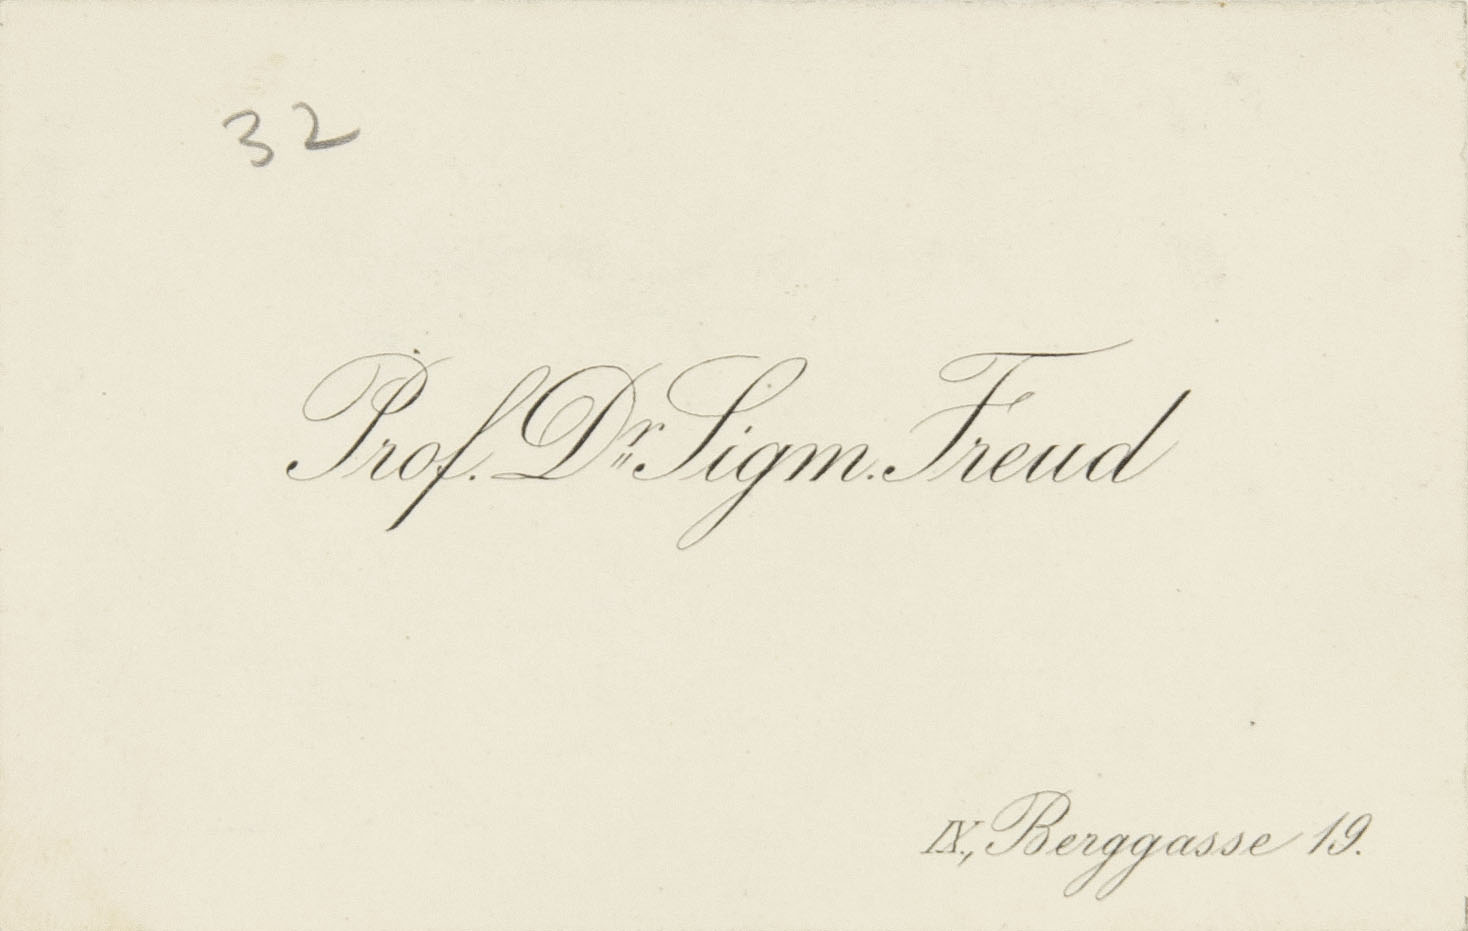 32
Prof. Dr. Sigm. Freud
IX., Berggasse 19.